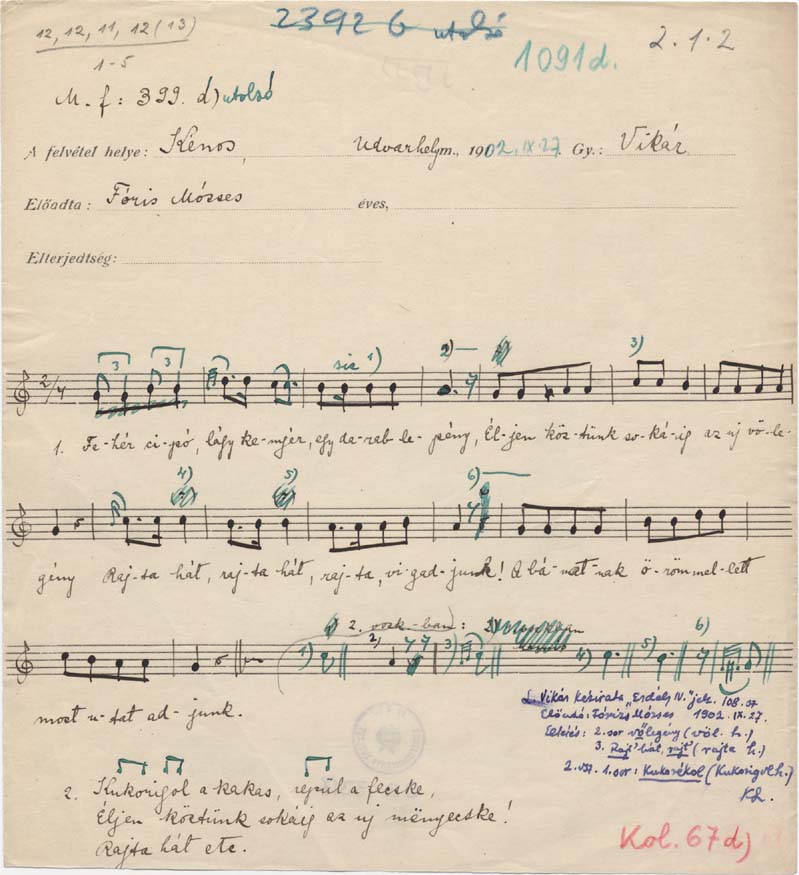 12, 12, 11, 12 (13)
1-5
2392 b utolsó
1091 d.
2.1.2
M. f: 399. d) utolsó
A felvétel helye: Kénos, Udvarhelym., 1902. IX. 27. Gy.: Vikár
Előadta: Fóris Mózses éves,
Elterjedtség:
3 3 sic 1) 2) 3)
2/4
1. Fe-hér ci-pó, lágy ke-nyér, egy da-rab le-pény, Él-jen köz-tünk so-ká-ig az uj vő-le-
4) 5) 6)
gény Raj-ta hát, raj-ta hát, raj-ta, vi-gad-junk! A bá-nat-nak ö-röm-mel-lett
2. versz.-ban:
1) 2) 3) 4) 5) 6)
most u-tat ad-junk.
L. Vikár Kézirata „Erdély IV." jelz. 108. sz
Előadó: Fórizs Mózses 1902. IX. 27.
Eltérés: 2. sor vőlegény (völ. h.)
3. Rajt' hát, rajt' (rajta h.)
2. vsz. 1. sor: Kukorékol (Kukorigol h.)
2. Kukorigol a kakas, repül a fecske,
Éljen köztünk sokáig az uj mënyecske!
Rajta hát etc.
Kol. 67 d)